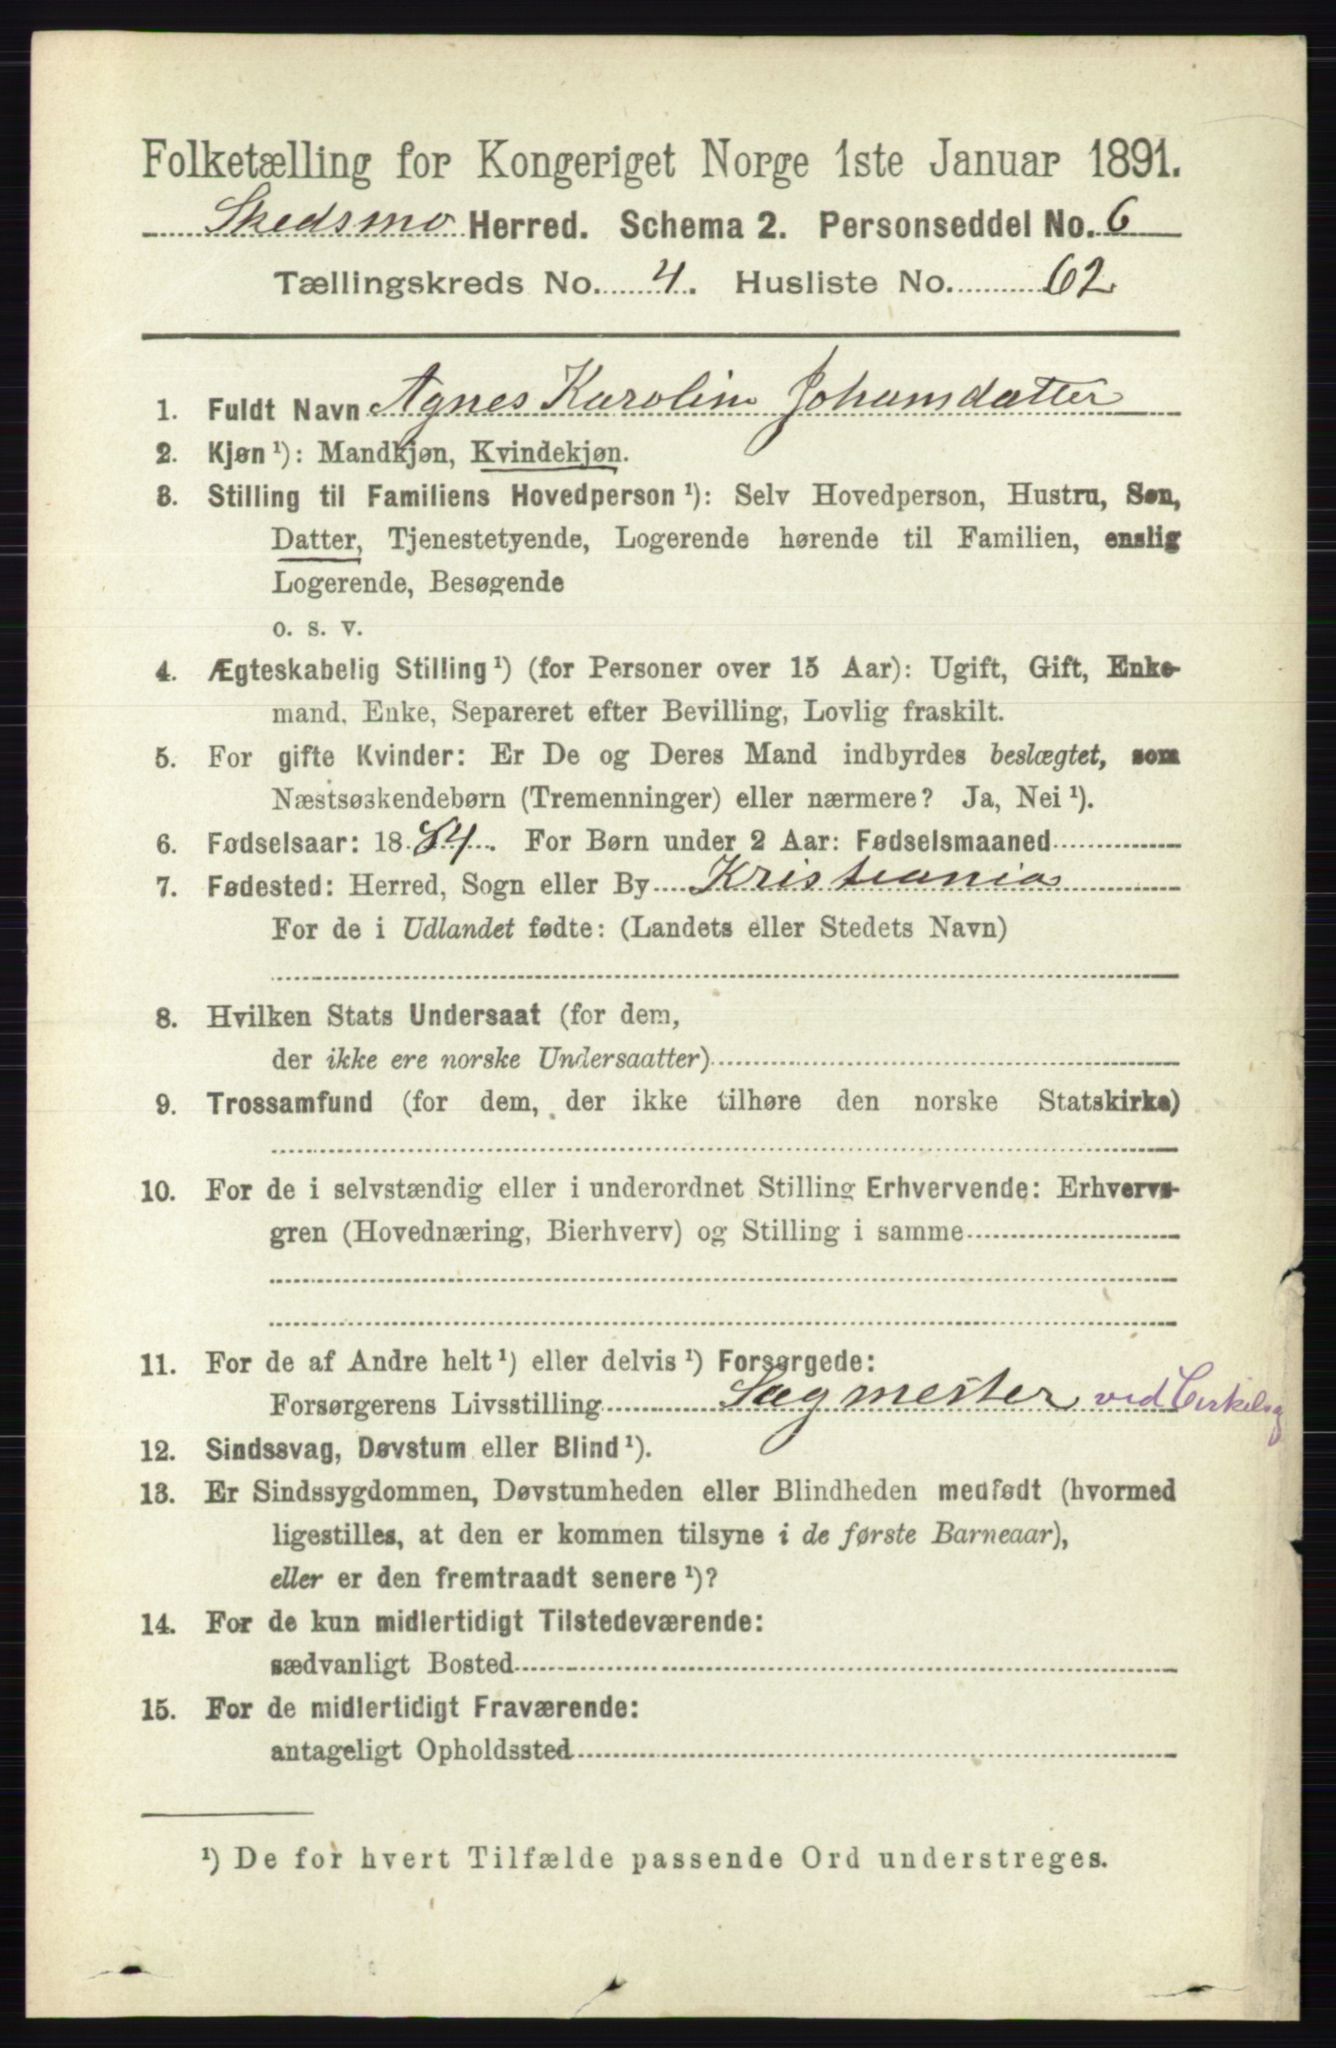 Folketælling for Kongeriget Norge 1ste Januar 1891.
Skedsmo Herred. Schema 2. Personseddel No. 6
Tællingskreds No. 4. Husliste No. 62
1. Fuldt Navn Agnes Karolin Johansdatter
2. Kjøn¹): Mandkjøn, Kvindekjøn.
3. Stilling til Familiens Hovedperson¹): Selv Hovedperson, Hustru, Søn,
Datter, Tjenestetyende, Logerende hørende til Familien, enslig
Logerende, Besøgende
o. s. v.
4. Ægteskabelig Stilling¹) (for Personer over 15 Aar): Ugift, Gift, Enke-
mand, Enke, Separeret efter Bevilling, Lovlig fraskilt.
5. For gifte Kvinder: Er De og Deres Mand indbyrdes beslægtet, som
Næstsøskendebørn (Tremenninger) eller nærmere? Ja, Nei¹).
6. Fødselsaar: 1884. For Børn under 2 Aar: Fødselsmaaned
7. Fødested: Herred, Sogn eller By Kristiania
For de i Udlandet fødte: (Landets eller Stedets Navn)
8. Hvilken Stats Undersaat (for dem,
der ikke ere norske Undersaatter)
9. Trossamfund (for dem, der ikke tilhøre den norske Statskirke)
10. For de i selvstændig eller i underordnet Stilling Erhvervende: Erhvervs-
gren (Hovednæring, Bierhverv) og Stilling i samme
11. For de af Andre helt¹) eller delvis¹) Forsørgede:
Forsørgerens Livsstilling Sagmester ved Cirkelsag
12. Sindssvag, Døvstum eller Blind¹).
13. Er Sindssygdommen, Døvstumheden eller Blindheden medfødt (hvormed
ligestilles, at den er kommen tilsyne i de første Barneaar),
eller er den fremtraadt senere¹)?
14. For de kun midlertidigt Tilstedeværende:
sædvanligt Bosted
15. For de midlertidigt Fraværende:
antageligt Opholdssted
¹) De for hvert Tilfælde passende Ord understreges.